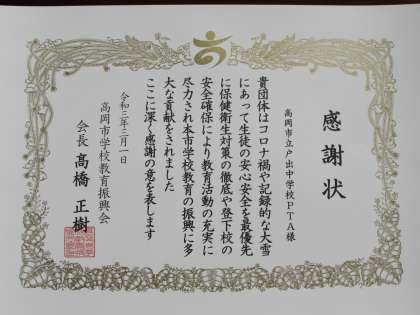 感謝状
高岡市立戸出中学校PTA様
貴団体はコロナ禍や記録的な大雪
にあって生徒の安心安全を最優先
に保健衛生対策の徹底や登下校の
安全確保により教育活動の充実に
尽力され本市学校教育の振興に多
大な貢献をされました
ここに深く感謝の意を表します
令和三年三月一日
高岡市学校教育振興会
会長 髙橋正樹